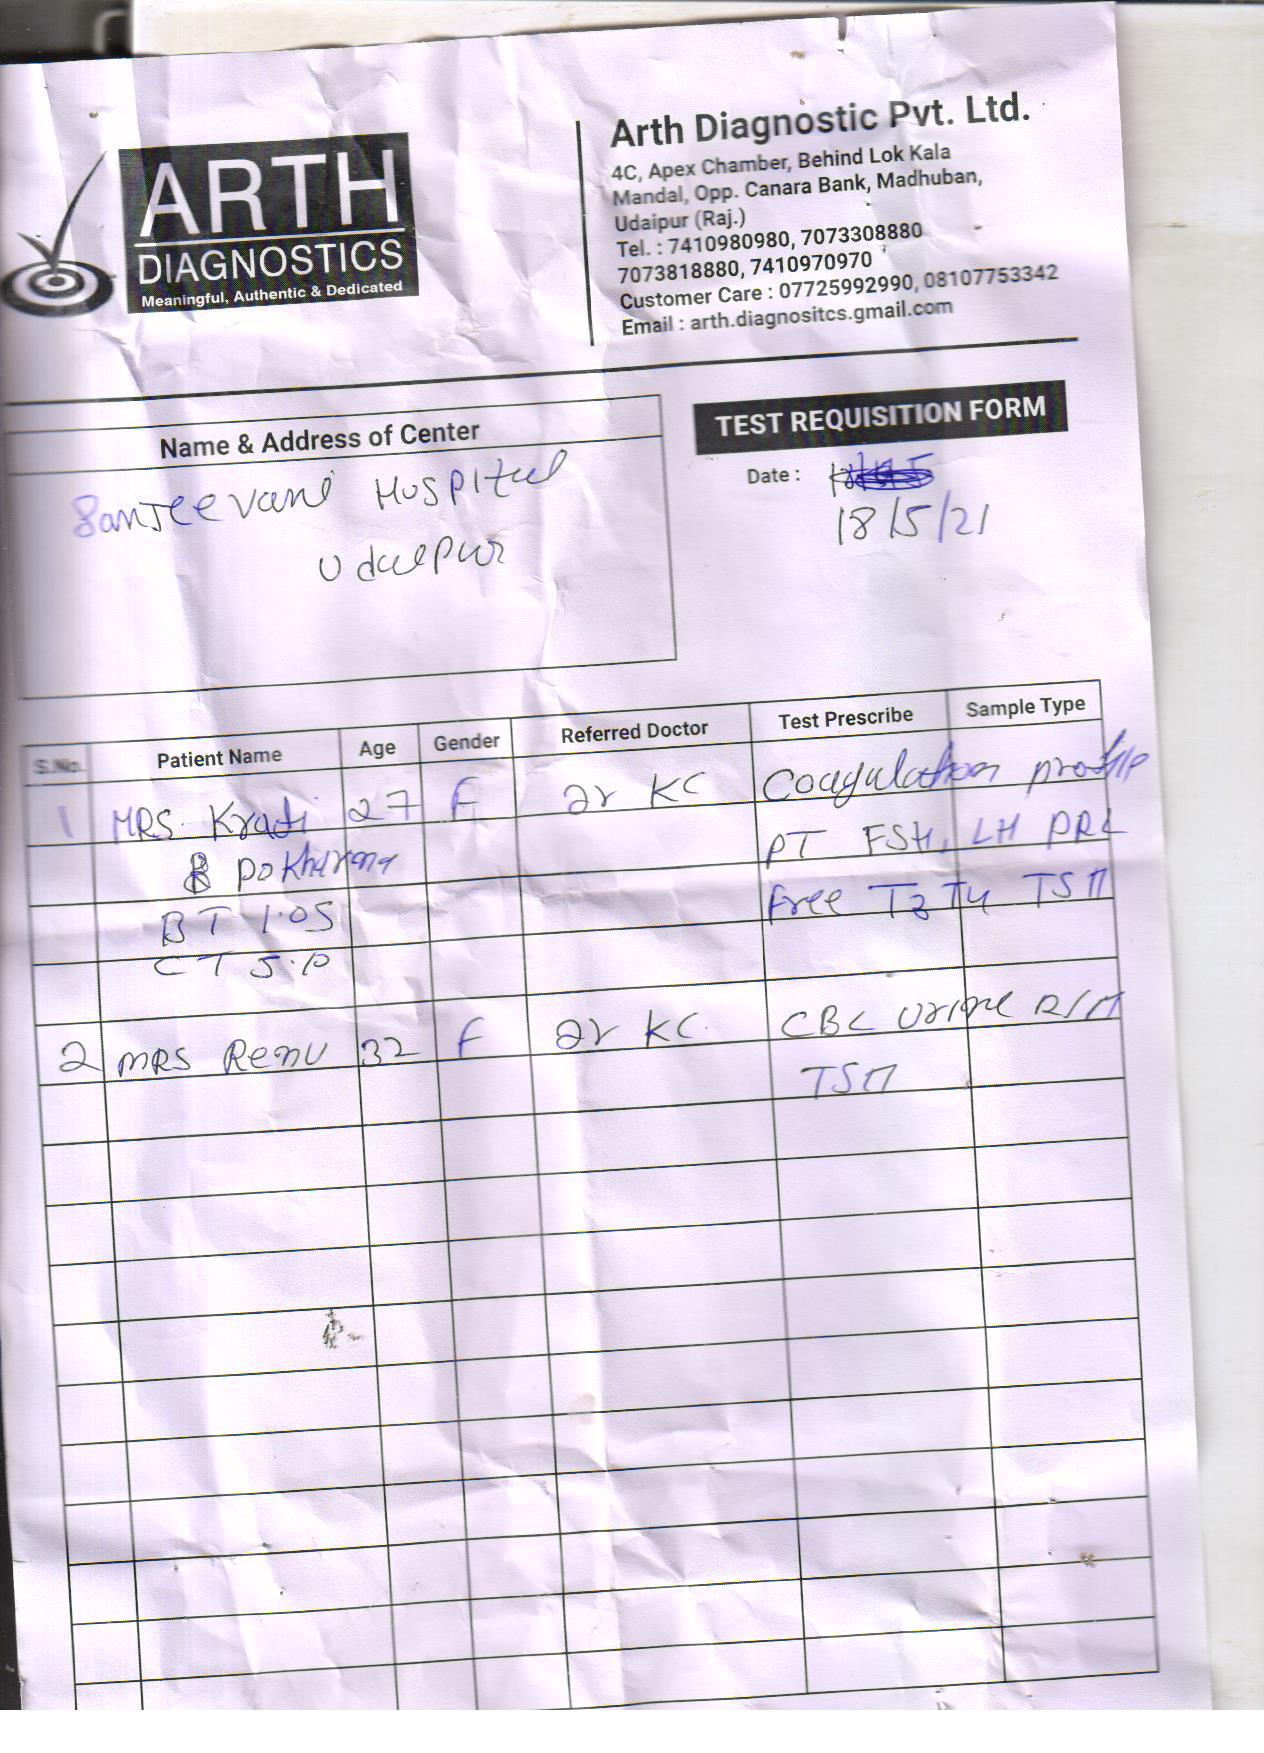 ARTH
DIAGNOSTICS
Meaningful, Authentic & Dedicated
Arth Diagnostic Pvt. Ltd.
4C, Apex Chamber, Behind Lok Kala
Mandal, Opp. Canara Bank, Madhuban,
Udaipur (Raj.)
Tel. : 7410980980, 7073308880
7073818880, 7410970970
Customer Care : 07725992990, 08107753342
Email : arth.diagnositcs.gmail.com
Name & Address of Center
Sanjeevani Hospital
Udaipur
TEST REQUISITION FORM
Date :
18/5/21
S.No. Patient Name Age Gender Referred Doctor Test Prescribe Sample Type
1 MRS. Krati 27 F Dr KC Coagulation profile
Pokharna PT FSH, LH PRL
BT 1.05 Free T3 T4 TSH
CT 5.10
2 MRS Renu 32 F Dr KC. CBC Urine R/M
TSH